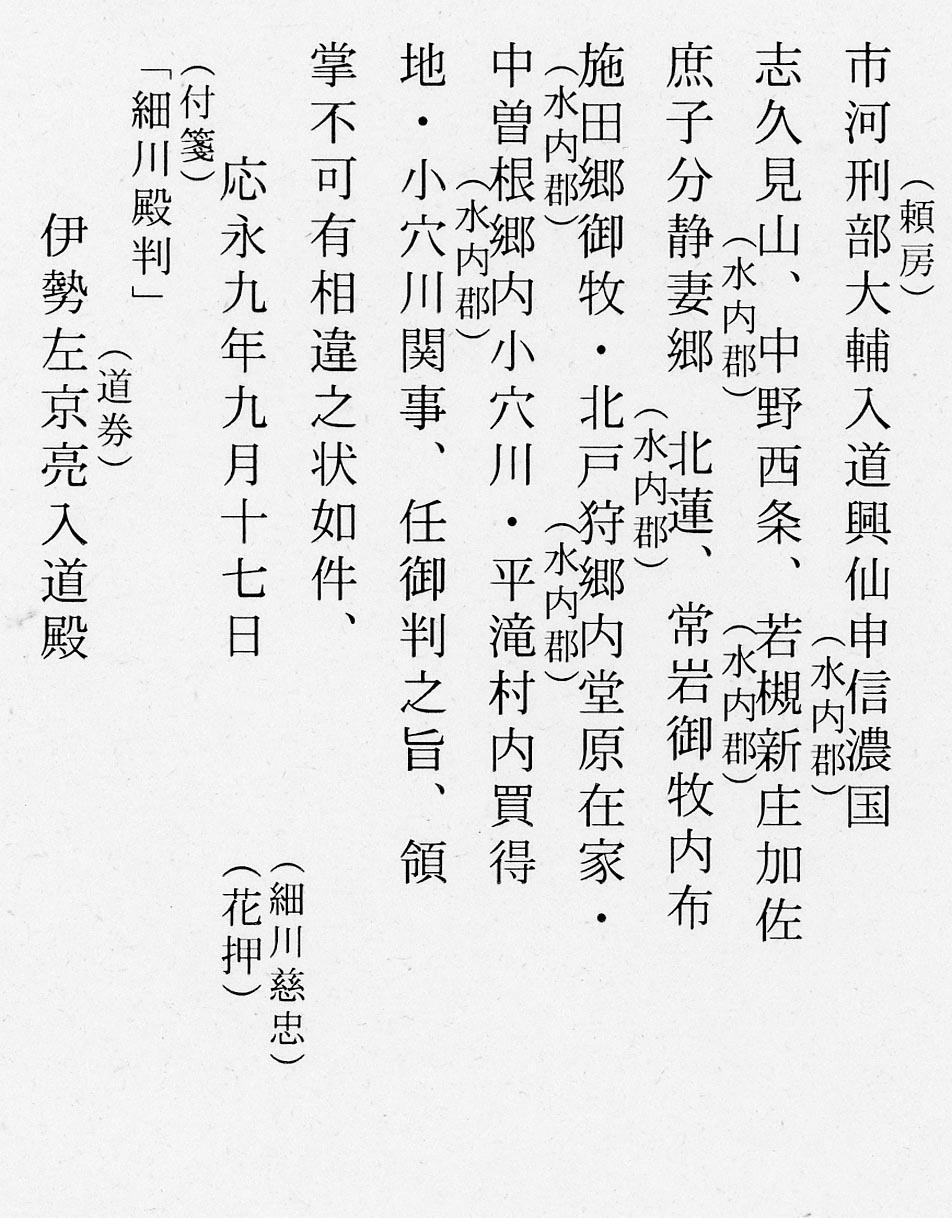 （頼房）
市河刑部大輔入道興仙申信濃国
（水内郡）
志久見山、中野西条、若槻新庄加佐
（水内郡）（水内郡）
庶子分静妻郷　北蓮、常岩御牧内布
（水内郡）
施田郷御牧・北戸狩郷内堂原在家・
（水内郡）（水内郡）
中曽根郷内小穴川・平滝村内買得
（水内郡）
地・小穴川関事、任御判之旨、領
掌不可有相違之状如件、
（細川慈忠）
応永九年九月十七日　（花押）
（付箋）
「細川殿判」
（道券）
伊勢左京亮入道殿